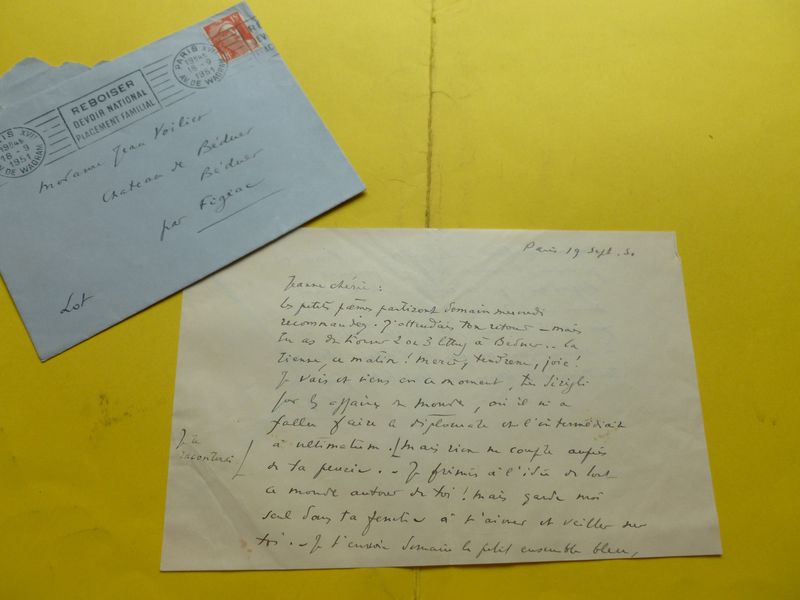 PARIS XVII
19H45
18 - 9
1951
AV. DE WAGRAM
REBOISER
DEVOIR NATIONAL
PLACEMENT FAMILIAL
PARIS XVII
19H45
18 - 9
1951
AV. DE WAGRAM
Madame Jean Voilier
Chateau de Béduer
Béduer
par Figeac
Lot
Paris 19 Sept.
Jeanne chérie :
Les petits poèmes partiront demain mercredi
recommandés. J'attendais ton retour – mais
tu as dû trouver 2 ou 3 lettres à Béduer.. La
tienne, ce matin ! merci, tendresse, joie !
Je vais et viens en ce moment,
par les affaires du Monde, où il m'a
fallu faire le diplomate et l'intermédiaire
à ultimatum. [mais rien ne compte auprès
Je te
raconterai
de ta pensée. – Je frémis à l'idée de tout
ce monde autour de toi ! mais garde moi
seul dans ta fonction à t'aimer et veiller sur
toi. – Je t'envoie demain le petit ensemble bleu,